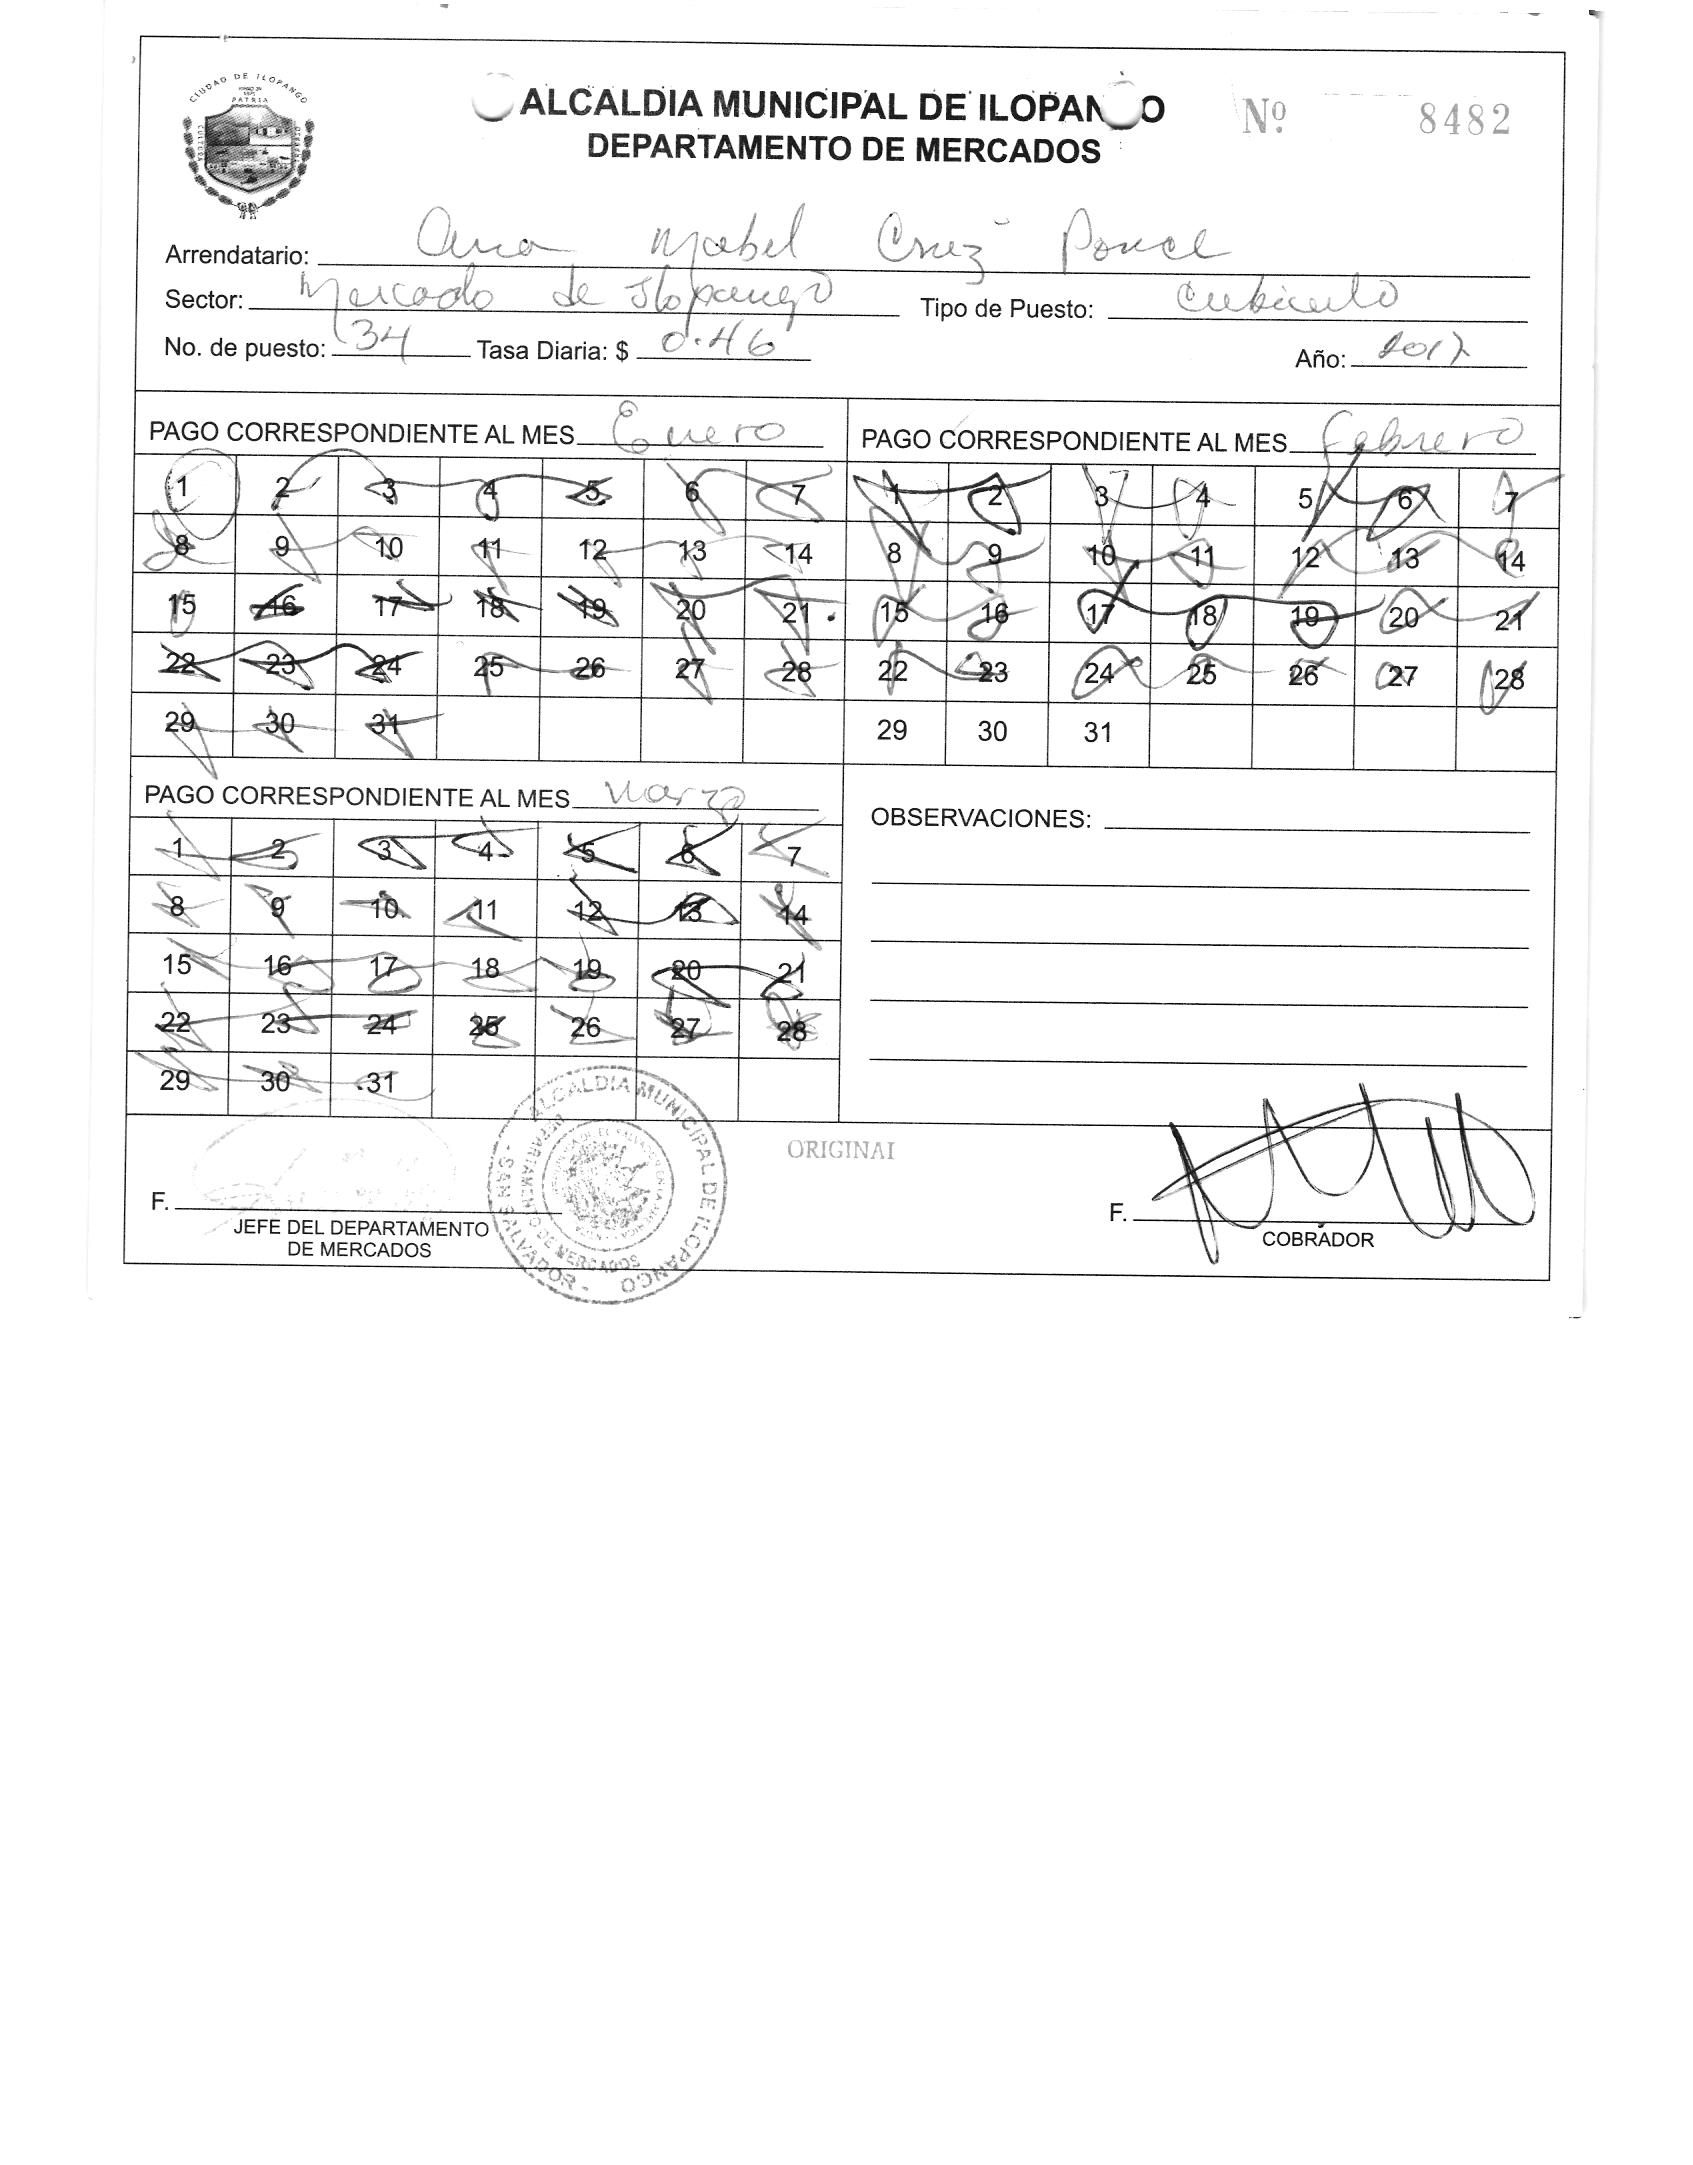 CIUDAD DE ILOPANGO
PATRIA
CULTURA
ALCALDIA MUNICIPAL DE ILOPAN O
DEPARTAMENTO DE MERCADOS
Nº 8482
Arrendatario: Ana Mabel Cruz Ponce
Sector: Mercado de Ilopango Tipo de Puesto: Cubiculo
No. de puesto: 34 Tasa Diaria: $ 0.46 Año: 2017
PAGO CORRESPONDIENTE AL MES Enero
1 2 3 4 5 6 7
8 9 10 11 12 13 14
15 16 17 18 19 20 21
22 23 24 25 26 27 28
29 30 31
PAGO CORRESPONDIENTE AL MES Febrero
1 2 3 4 5 6 7
8 9 10 11 12 13 14
15 16 17 18 19 20 21
22 23 24 25 26 27 28
29 30 31
PAGO CORRESPONDIENTE AL MES Marzo
1 2 3 4 5 6 7
8 9 10 11 12 13 14
15 16 17 18 19 20 21
22 23 24 25 26 27 28
29 30 31
OBSERVACIONES:
ALCALDIA MUNICIPAL DE ILOPANGO
- SAN SALVADOR -
DEPARTAMENTO DE MERCADOS
ORIGINAL
F.
JEFE DEL DEPARTAMENTO
DE MERCADOS
F.
COBRADOR